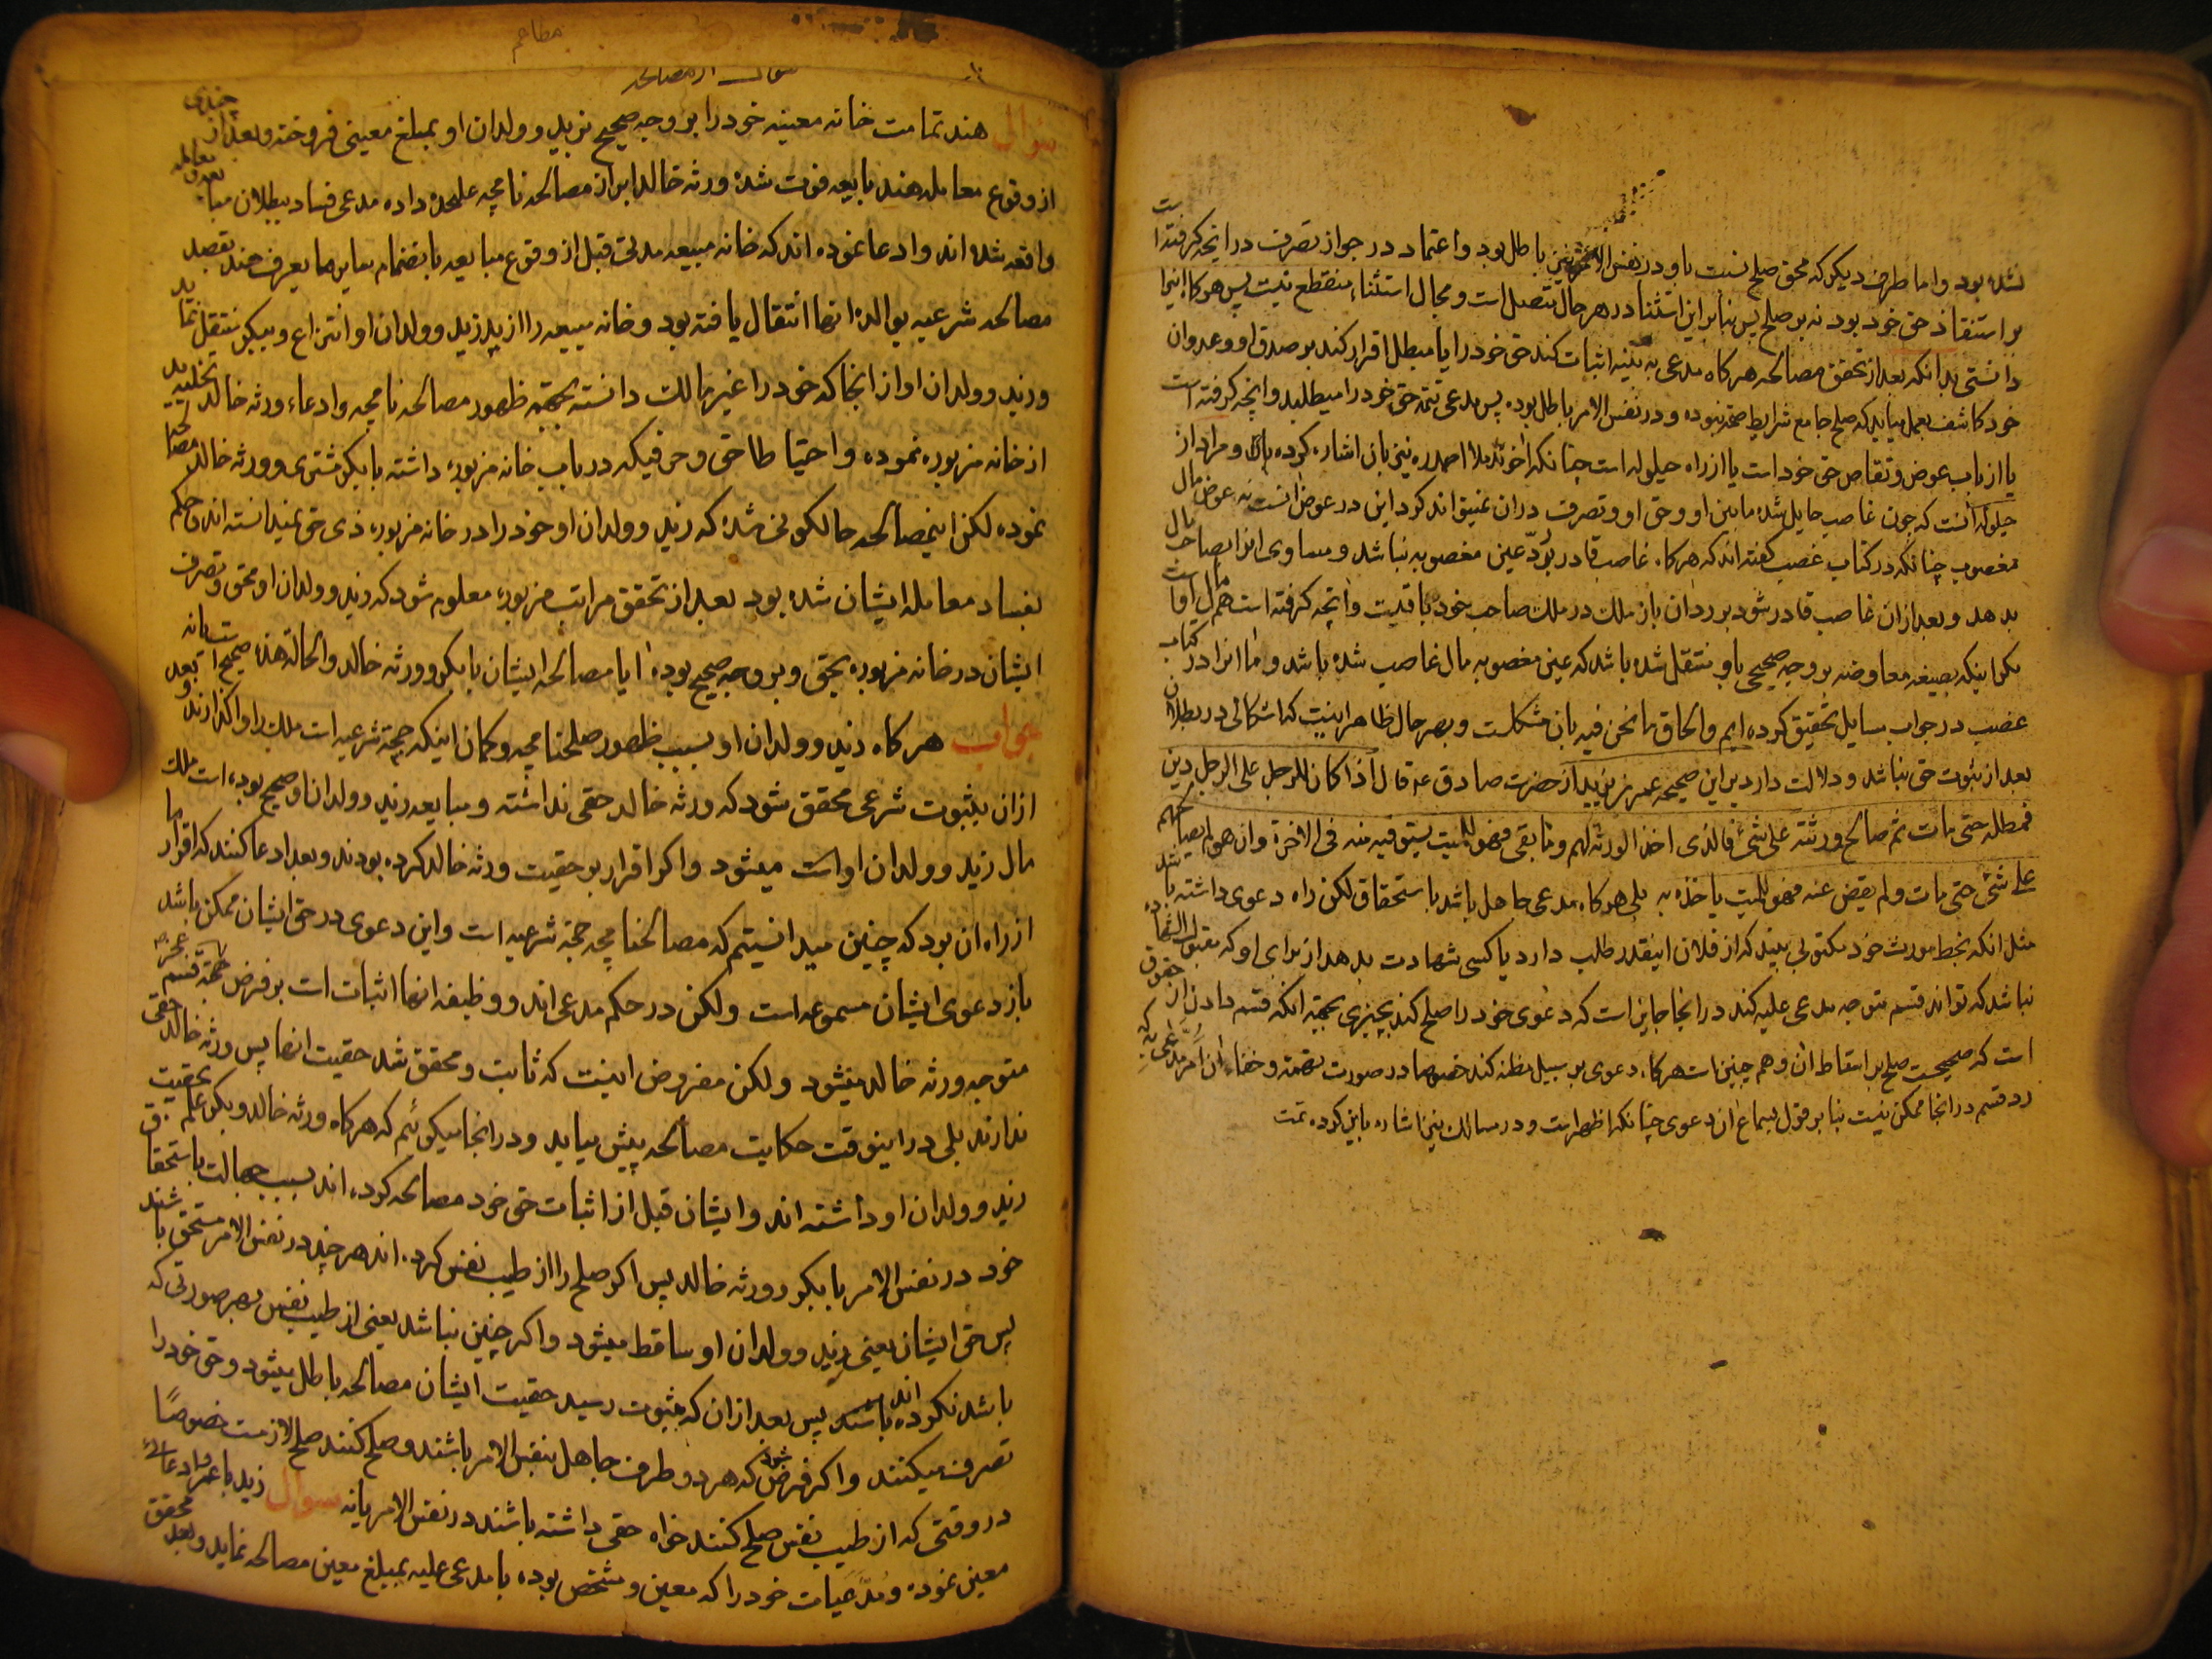 نشده بود و اما طرف دیگر که محق صلح نسبت باو در نفس الامر نیز باطل بود و اعتماد در جواز تصرف در انچه گرفته است
بر استنقاذ حق خود بود نه بر صلح پس بنا بر این استثنا در هر حال متصل است و مجال استثناء منقطع نیست پس هرگاه اینرا
دانستی بدانکه بعد از تحقق مصالحه هرگاه مدعی به بینه اثبات کند حق خود را یا مبطل اقرار کند بر صدق او و عدوان
خود کاشف بعمل میاید که صلح جامع شرایط صحة نبوده و در نفس الامر باطل بوده پس مدعی تتمه حق خود را میطلبد و انچه گرفته است
یا از باب عوض و تقاص حق خود است یا از راه حیلوله است چنانکه اخوند ملا احمد ره نیز بان اشاره کرده و مراد از
حیلوله آنست که چون غاصب حایل شده مابین او و حق او و تصرف در ان نمیتواند کرد این در عوض انست نه عوض مال
مغصوب چنانکه در کتاب غصب گفته اند که هرگاه غاصب قادر بر ردّ عین مغصوبه نباشد و مساوی انرا بصاحب مال
بدهد و بعد از ان غاصب قادر شود بر رد ان باز ملك در ملك صاحب خود باقیست و انچه گرفته است هم مال اوست
مگر اینکه بصیغه معاوضه بر وجه صحیحی باو منتقل شده باشد که عین مغصوبه مال غاصب شده باشد و ما انرا در کتاب
غصب در جواب مسایل تحقیق کرده ایم و الحاق ما نحن فیه بان مشکلست و بهر حال ظاهر اینست که اشکالی در بطلان
بعد از ثبوت حق نباشد و دلالت دارد بر این صحیحه عمر بن یزید از حضرت صادق ع قال اذا کان للرجل علی الرجل دین
فمطله حتی مات ثم صالح ورثته علی شئ فالذی اخذ الورثه لهم و ما بقی فهو للمیت یستوفیه منه فی الاخرة و ان هو لم یصالحهم
علی شئ حتی مات و لم یقض عنه فهو للمیت یاخذه به بلی هرگاه مدعی جاهل باشد باستحقاق لکن راه دعوی داشته باشد
مثل انکه بخط مورث خود مکتوبی بیند که از فلان اینقدر طلب دارد یا کسی شهادت بدهد از برای او که مقبول الشهادة
نباشد که تواند قسم متوجه مدعی علیه کند در انجا جایز است که دعوی خود را صلح کند بچیزی بجهة انکه قسم دادن از حقوق
است که صحیحست صلح بر اسقاط ان و هم چنین است هرگاه دعوی بر سبیل مظنه کند خصوصا در صورت تهمة و خفاء ان امر بر مدعی که
رد قسم در انجا ممکن نیست بنا بر قول بسماع ان دعوی چنانکه اظهر است و در مسالك نیز اشاره باین کرده تمت
مطاعم
سؤال از مصالحه
سؤال هند تمامت خانه معینه خود را بر وجه صحیح بزید و ولدان او بمبلغ معینی فروخته و بعد از چندی
از وقوع معامله هند بایعه فوت شده ورثه خالد ابراز مصالحه نامچه علیحده داده مدعی فساد و بطلان مبایعه و معامله
واقعه شده اند و ادعا نموده اند که خانه مبیعه مدتی قبل از وقوع مبایعه بانضمام سایر ما یعرف هند بقصد
مصالحه شرعیه بوالد انها انتقال یافته بود و خانه مبیعه را از ید زید و ولدان او انتزاع و ببکر منتقل نماید
و زید و ولدان او از انجا که خود را غیر مالك دانسته بجهة ظهور مصالحه نامچه و ادعاء ورثه خالد تخلیه ید
از خانه مزبوره نموده و احتیاطا حق و حرفیکه در باب خانه مزبوره داشته با بکر مشتری و ورثه خالد مصالحه
نموده لکن اینمصالحه حالکونی شده که زید و ولدان او خود را در خانه مزبوره ذی حق نمیدانسته اند و حکم
بفساد معامله ایشان شده بود بعد از تحقق مراتب مزبوره معلوم شود که زید و ولدان او محق و تصرف
ایشان در خانه مزبوره بحق و بر وجه صحیح بوده ایا مصالحه ایشان با بکر و ورثه خالد و الحالة هذه صحیح است یا نه
جواب هرگاه زید و ولدان او بسبب ظهور صلحنامچه و گمان اینکه حجة شرعیه است ملك را واگذارند و بعد
از ان بثبوت شرعی محقق شود که ورثه خالد حقی نداشته و مبایعه زید و ولدان او صحیح بوده است ملك
مال زید و ولدان او است میشود و اگر اقرار بر حقیت ورثه خالد کرده بودند و بعد ادعا کنند که اقرار ما
از راه ان بود که چنین میدانستیم که مصالحنامچه حجة شرعیه است و این دعوی در حق ایشان ممکن باشد
باز دعوی ایشان مسموعه است ولکن در حکم مدعی اند و وظیفه انها اثبات است بر فرض عجز قسم
متوجه ورثه خالد میشود ولکن مفروض اینست که ثابت و محقق شد حقیت انها پس ورثه خالد حقی
ندارند بلی در اینوقت حکایت مصالحه پیش میاید و در انجا میگوئیم که هرگاه ورثه خالد و بکر علم بحقیت
زید و ولدان او داشته اند و ایشان قبل از اثبات حق خود مصالحه کرده اند بسبب جهالت باستحقاق
خود در نفس الامر با بکر و ورثه خالد پس اگر صلح را از طیب نفس کرده اند هر چند در نفس الامر مستحق باشند
پس حق ایشان یعنی زید و ولدان او ساقط میشود و اگر چنین نباشد یعنی از طیب نفس بهر صورتی که
باشد نکرده اند پس بعد از ان که بثبوت رسید حقیت ایشان مصالحه باطل میشود و حق خود را
تصرف میکنند و اگر فرض شود که هر دو طرف جاهل بنفس الامر باشند و صلح کنند صلح لازمست خصوصًا
در وقتی که از طیب نفس صلح کنند خواه حقی داشته باشند در نفس الامر یا نه سوال زید با عمرو ادعای
معین نموده و مدّعیات خود را که معین و مشخص بوده با مدعی علیه بمبلغ معین مصالحه نماید و بعد محقق